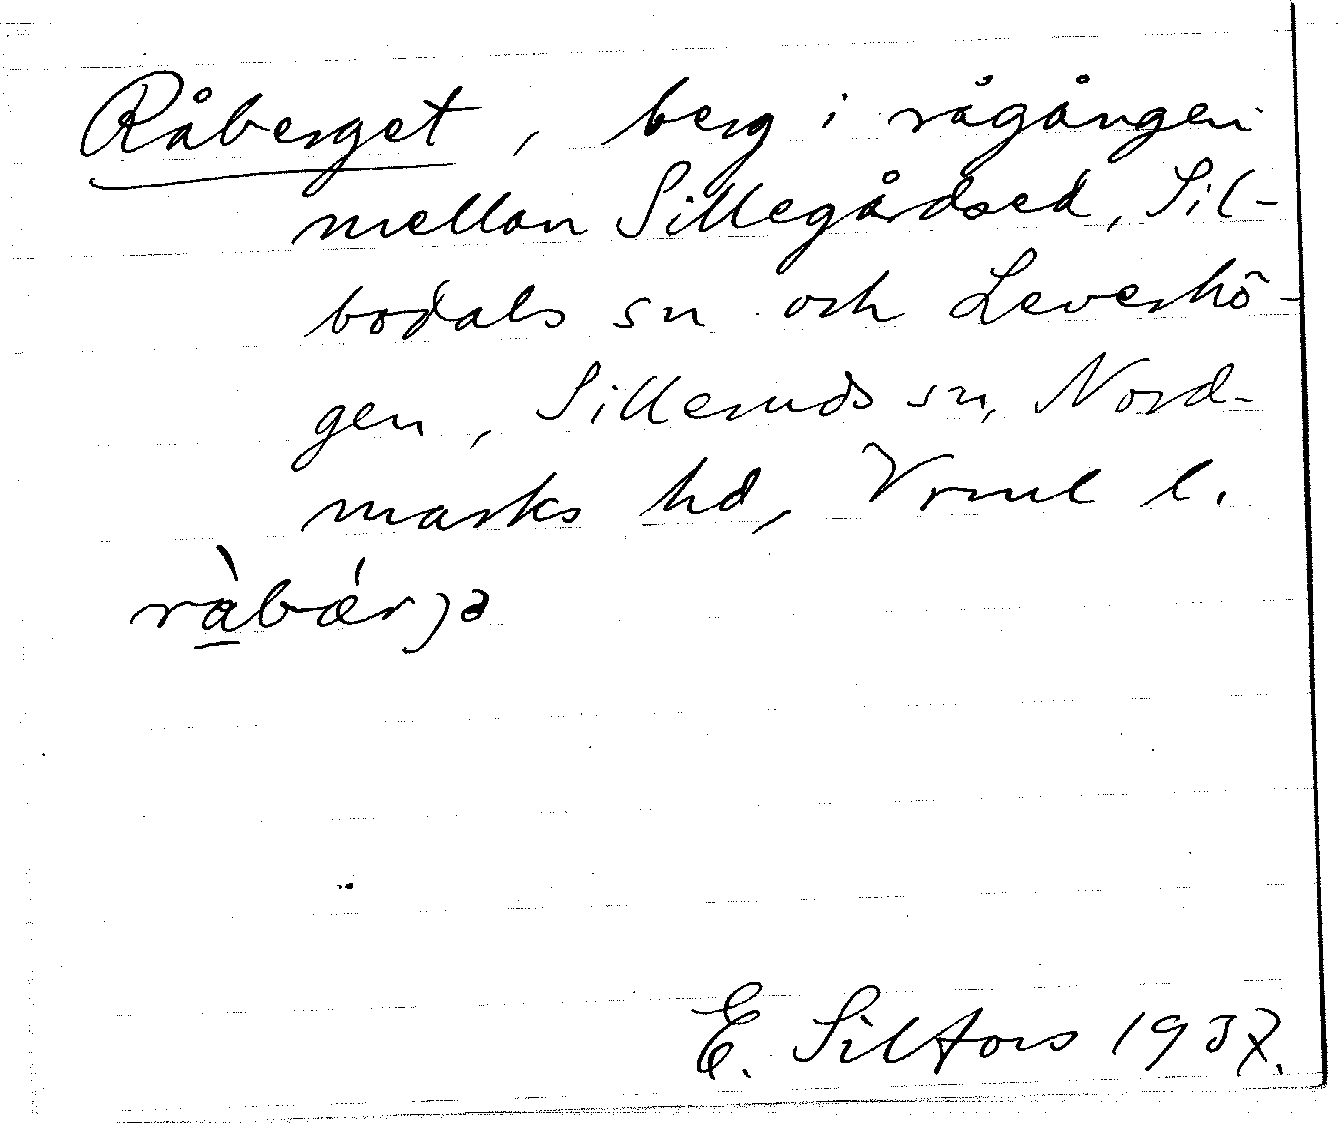 Råberget, berg i rågången
mellan Sillegårdsed, Sil-
bodals sn och Leverhö-
gen, Silleruds sn, Nord-
marks hd, Vrml l.
rà̲bǽrjə
E. Silfors 1937.